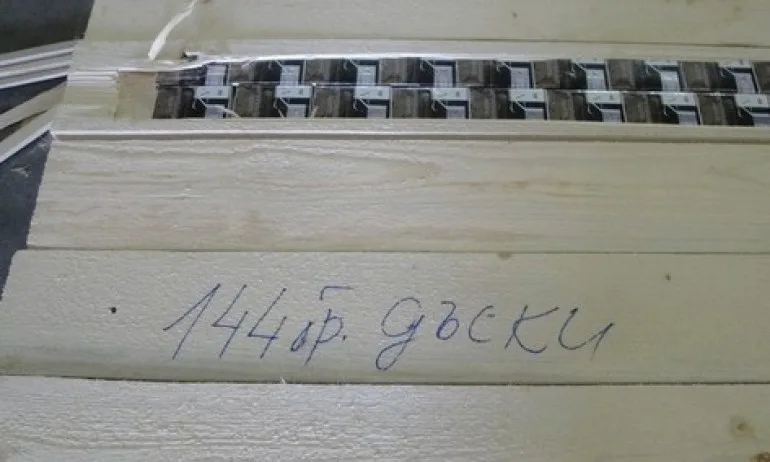 144бр. дъски